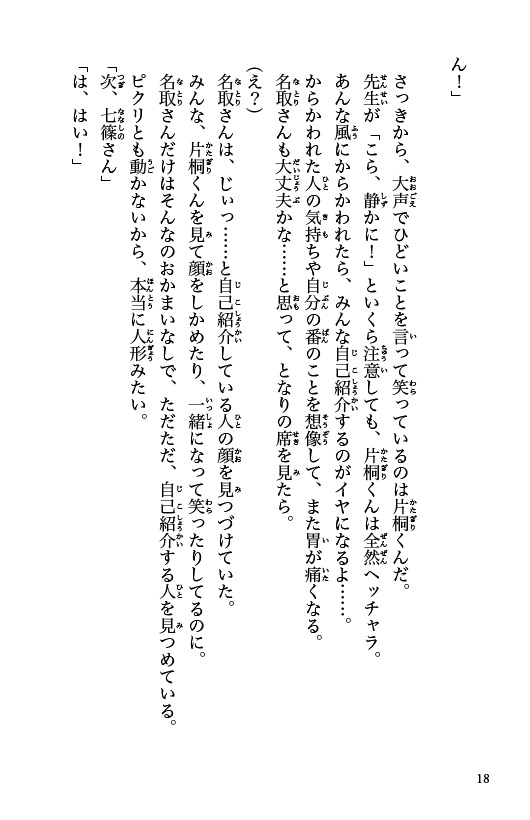 ん！」
さっきから、大声でひどいことを言って笑っているのは片桐くんだ。
先生が「こら、静かに！」といくら注意しても、片桐くんは全然ヘッチャラ。
あんな風にからかわれたら、みんな自己紹介するのがイヤになるよ……。
からかわれた人の気持ちや自分の番のことを想像して、また胃が痛くなる。
名取さんも大丈夫かな……と思って、となりの席を見たら。
（え？）
名取さんは、じぃっ……と自己紹介している人の顔を見つづけていた。
みんな、片桐くんを見て顔をしかめたり、一緒になって笑ったりしてるのに。
名取さんだけはそんなのおかまいなしで、ただただ、自己紹介する人を見つめている。
ピクリとも動かないから、本当に人形みたい。
「次、七篠さん」
「は、はい！」
18